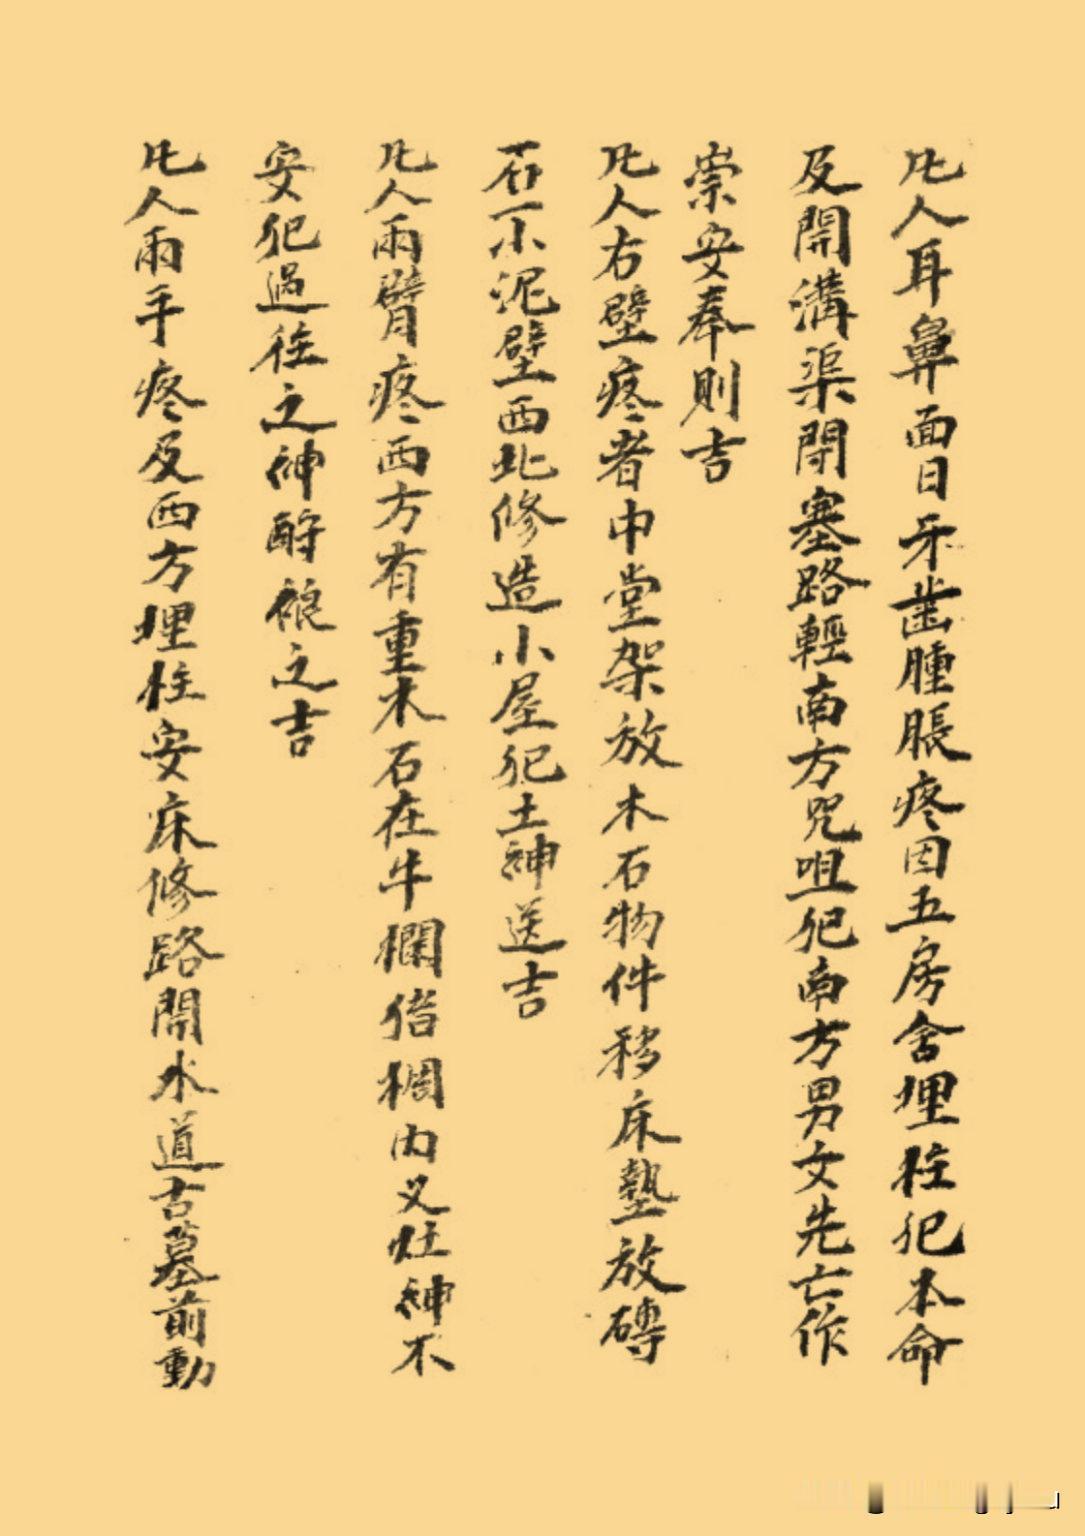 凡人耳鼻面目牙齒腫脹疼因五房舍埋柱犯本命
及開溝渠閉塞路輕南方咒咀犯南方男女先亡作
祟安奉則吉
凡人右壁疼者中堂架放木石物件移床墊放磚
石一小泥壁西北修造小屋犯土神送吉
凡人兩臂疼西方有重木石在牛欄猪椆内又灶神不
安犯過往之神酧禳之吉
凡人兩手疼及西方埋柱安床修路開水道古墓前動